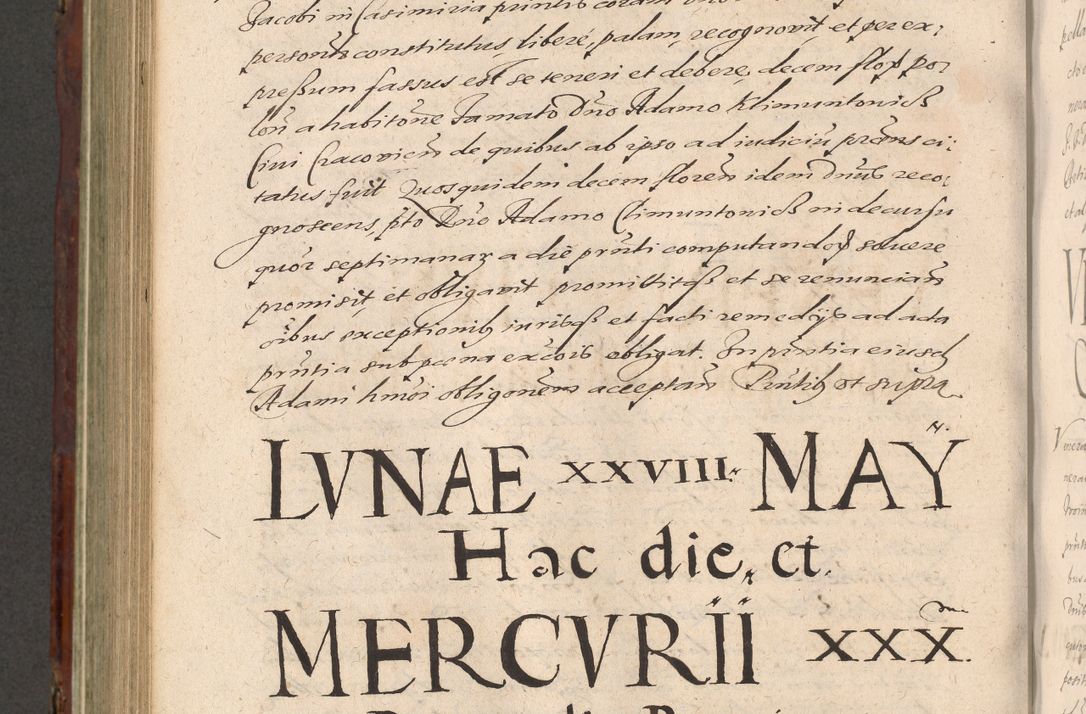 Jacobi in Casimiria printis coram
personis constitutus, libere, palam, recognovit, et per ex,
pressum fassus est se teneri et debere, decem flor pol
lon a habitone Famato Dno Adamo Klimuntowicz
Civi Cracovien de quibus ab ipso ad iudiciu prens ci,
tatus fuit Quos quidem decem floren idem Dnus reco,
gnoscens, pto Dno Adamo Climuntowicz in decursu
quor septimanar a die prnti computandor solvere
promisit, et obligavit promittitqs et se renuncian
oibus exceptionib iuribqs et facti remedijs ad acta
prntia sub poena excois obligat. In prntia eiusd
Adami hmoi obligonem acceptan Printib ut supra
LVNAE XXVIII. MAY
Hac die, et.
MERCVRII XXX.